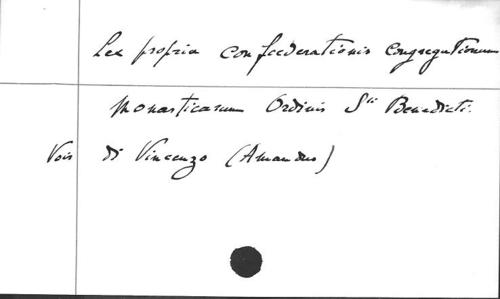 Lex propria confoederationis congregationum
Monasticarum Ordinis Sti Benedicti.
Vois di Vincenzo (Amandus)